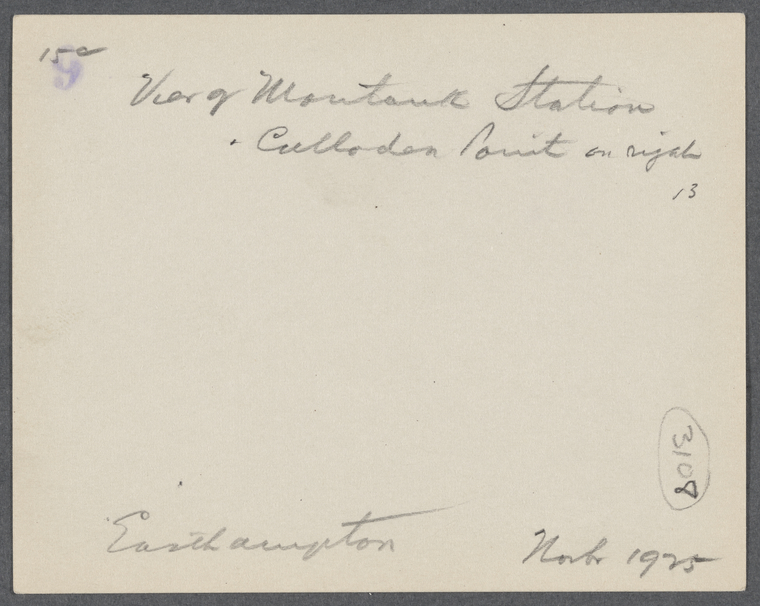 15c
5
View of Montauk Station
+ Culloden Point on right
13
3108
Easthampton Novbr 1925